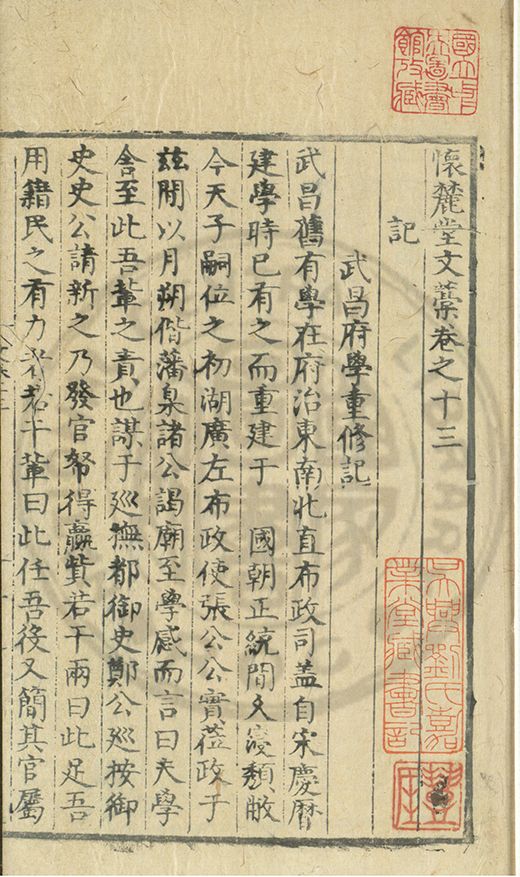 懷麓堂文藁卷之十三
記
武昌府學重修記
武昌舊有學在府治東南北直布政司盖自宋慶曆
建學時已有之而重建于 國朝正統間久寖頽敝
今天子嗣位之初湖廣左布政使張公公實蒞政于
兹間以月朔偕藩臬諸公謁廟至學感而言曰夫學
舍至此吾輩之責也謀于廵撫都御史鄭公廵按御
史史公請新之乃發官帑得羸貲若干兩曰此足吾
用籍民之有力者若干輩曰此任吾役又簡其官屬
國立中央圖書館收藏
吳興劉氏嘉業堂藏書記